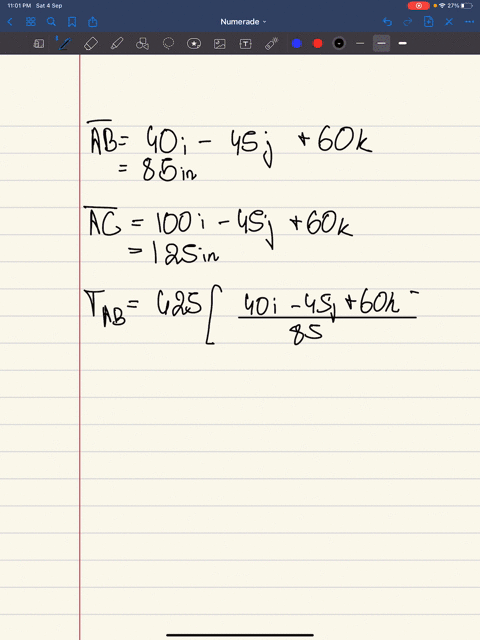 11:01 PM Sat 4 Sep
27%
Numerade
AB = 40i - 45j + 60k
= 85in
AC = 100i - 45j + 60k
= 125in
T_AB = 425 [ 40i - 45j + 60k
85